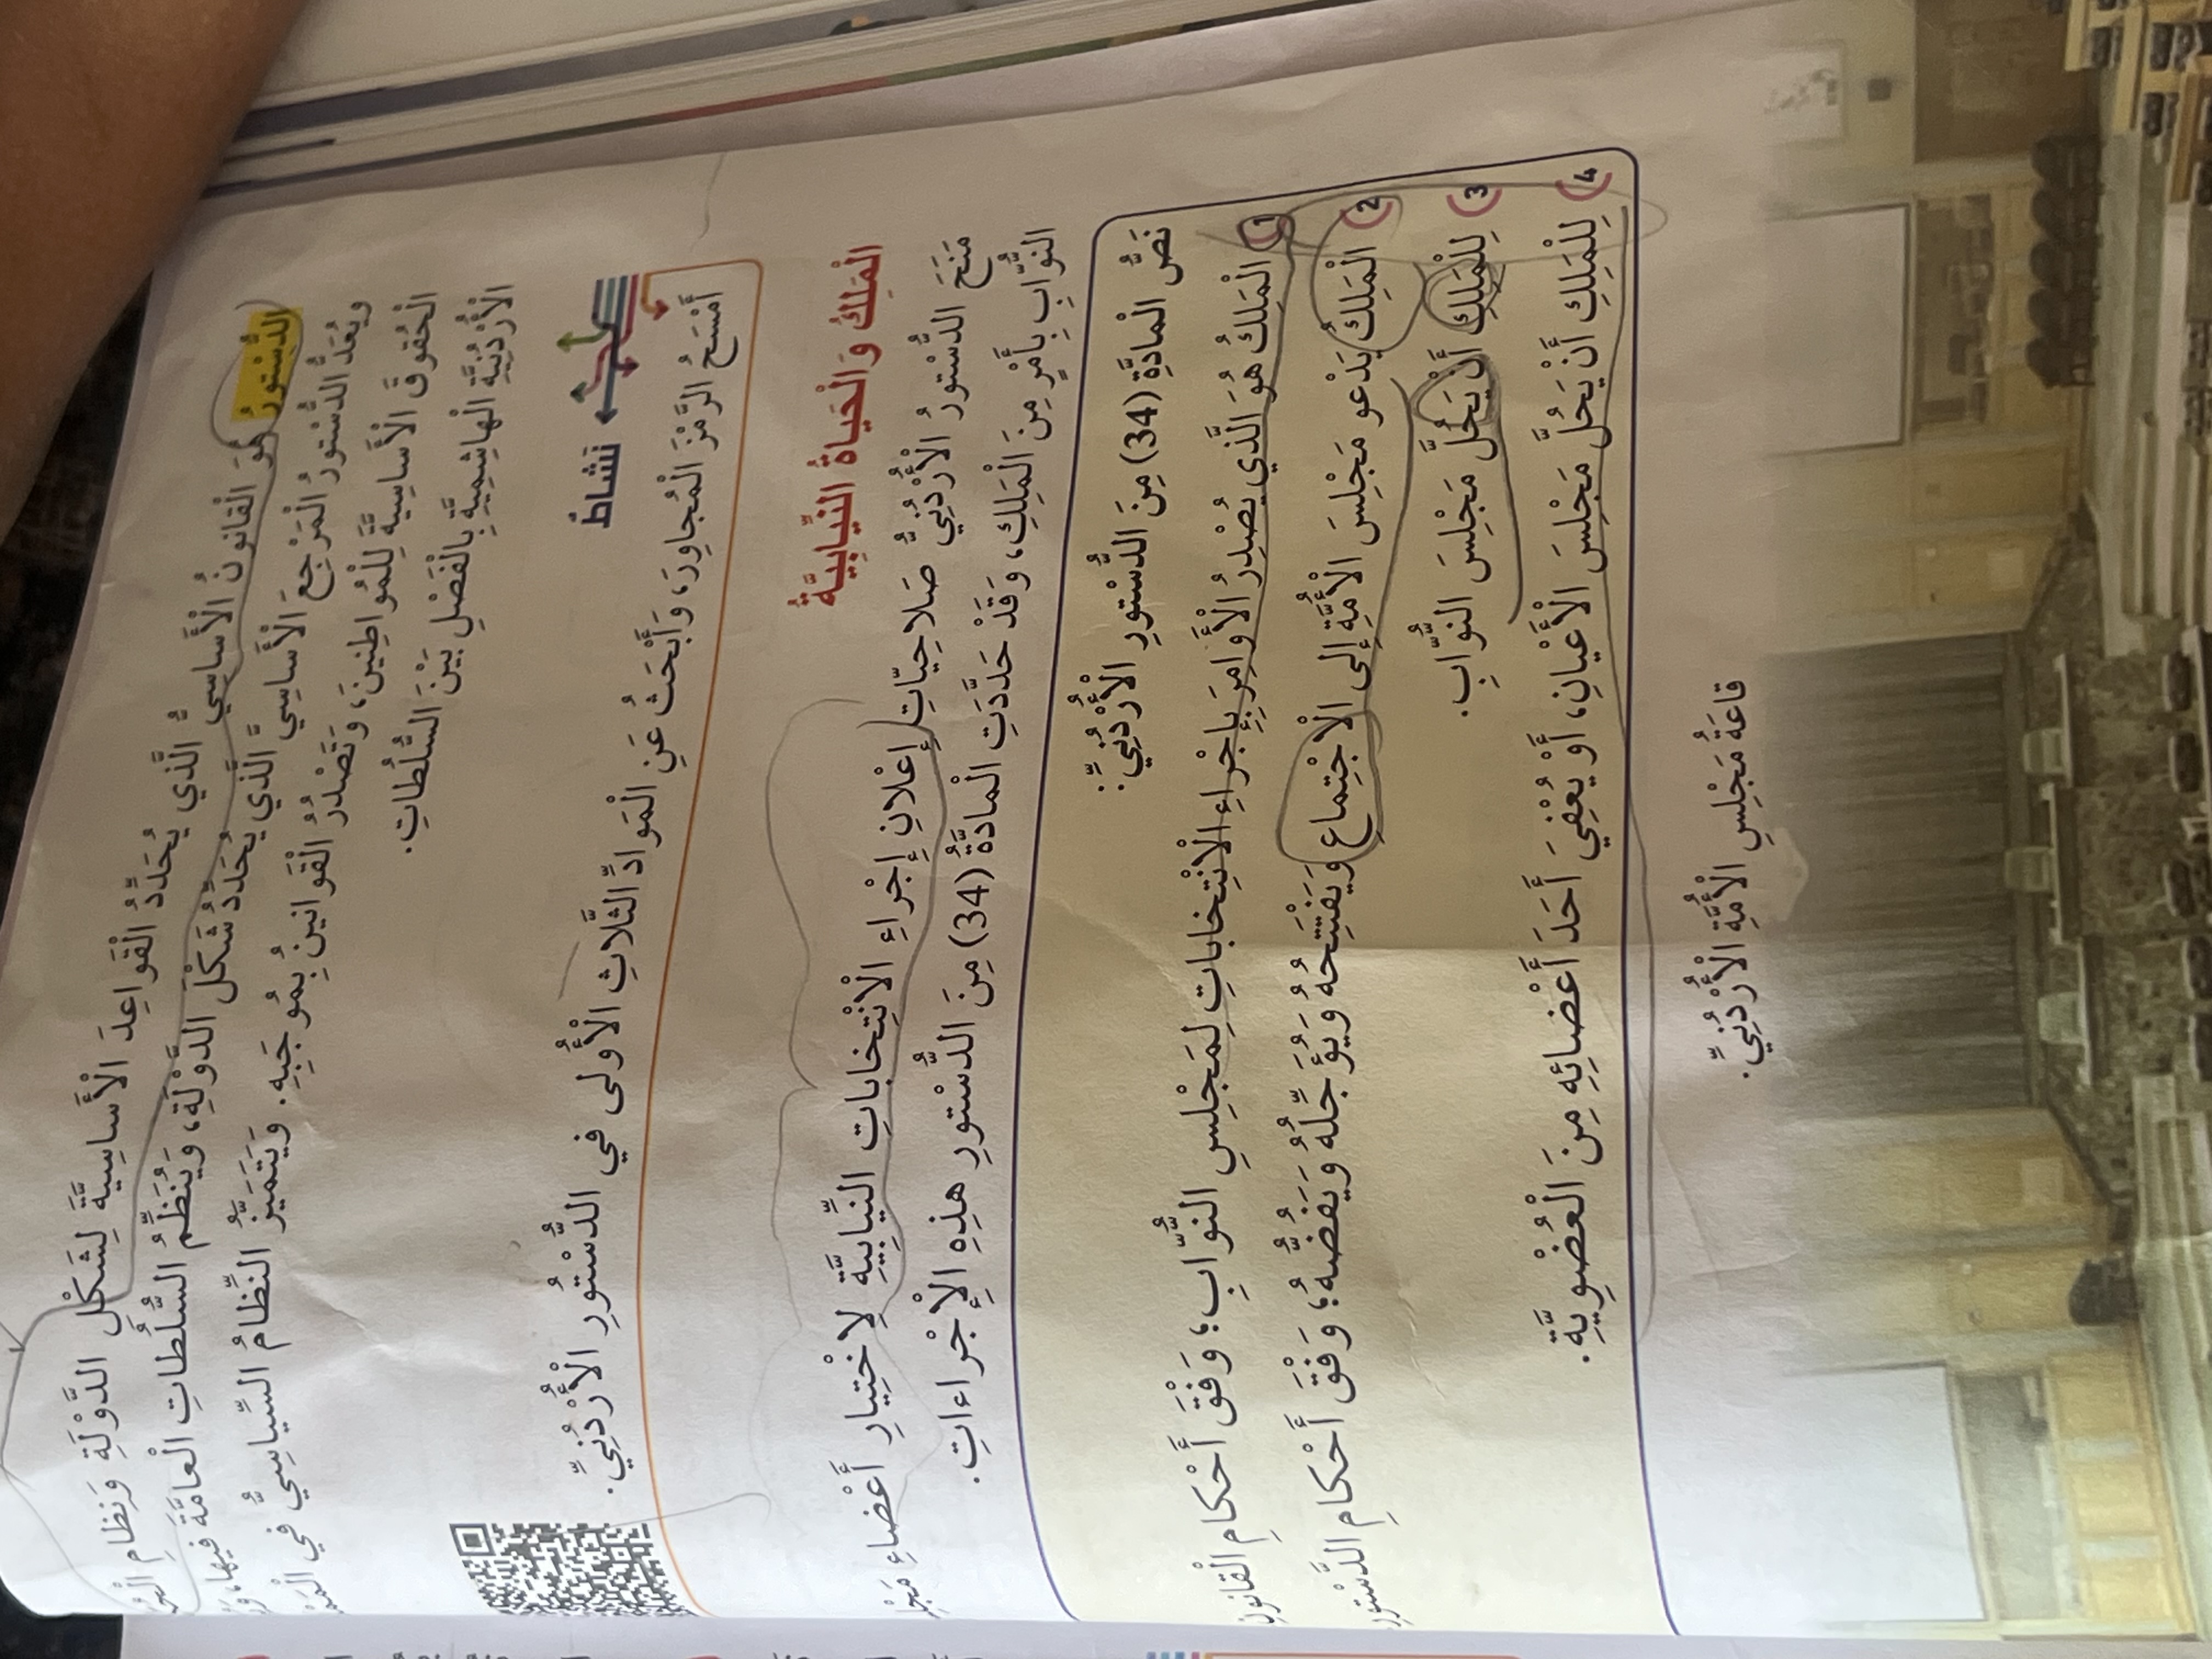 الدُّسْتورُ هُوَ الْقانونُ الْأَساسِيُّ الَّذي يُحَدِّدُ الْقَواعِدَ الْأَساسِيَّةَ لِشَكْلِ الدَّوْلَةِ وَنِظامِ
وَيُعَدُّ الدُّسْتورُ الْمَرْجِعَ الْأَساسِيَّ الَّذي يُحَدِّدُ شَكْلَ الدَّوْلَةِ، وَيُنَظِّمُ السُّلُطاتِ الْعامَّةَ فيها،
الْحُقوقَ الْأَساسِيَّةَ لِلْمُواطِنينَ، وَتَصْدُرُ الْقَوانينُ بِموجَبِهِ. وَيَتَمَيَّزُ النِّظامُ السِّياسِيُّ في
الْأُرْدُنِيَّةِ الْهاشِمِيَّةِ بِالْفَصْلِ بَيْنَ السُّلُطاتِ.
نَشاطٌ
أَمْسَحُ الرَّمْزَ الْمُجاوِرَ، وَأَبْحَثُ عَنِ الْمَوادِّ الثَّلاثِ الْأُولى في الدُّسْتُورِ الْأُرْدُنِيِّ.
الْمَلِكُ وَالْحَياةُ النِّيابِيَّةُ
مَنَحَ الدُّسْتورُ الْأُرْدُنِيُّ صَلاحِيّاتِ إِعْلانِ إِجْراءِ الْاِنْتِخاباتِ النِّيابِيَّةِ لِاخْتِيارِ أَعْضاءِ
النُّوّابِ بِأَمْرٍ مِنَ الْمَلِكِ، وَقَدْ حَدَّدَتِ الْمادَّةُ (34) مِنَ الدُّسْتورِ هذِهِ الْإِجْراءاتِ.
نَصُّ الْمادَّةِ (34) مِنَ الدُّسْتورِ الْأُرْدُنِيِّ:
1 الْمَلِكُ هُوَ الَّذي يُصْدِرُ الْأَوامِرَ بِإِجْراءِ الْاِنْتِخاباتِ لِمَجْلِسِ النُّوّابِ؛ وَفْقَ أَحْكامِ الْقانونِ
2 الْمَلِكُ يَدْعو مَجْلِسَ الْأُمَّةِ إِلى الْاِجْتِماعِ وَيَفْتَتِحُهُ وَيُؤَجِّلُهُ وَيَفُضُّهُ؛ وَفْقَ أَحْكامِ الدُّسْتورِ
3 لِلْمَلِكِ أَنْ يَحُلَّ مَجْلِسَ النُّوّابِ.
4 لِلْمَلِكِ أَنْ يَحُلَّ مَجْلِسَ الْأَعْيانِ، أَوْ يُعْفِيَ أَحَدَ أَعْضائِهِ مِنَ الْعُضْوِيَّةِ.
قاعَةُ مَجْلِسِ الْأُمَّةِ الْأُرْدُنِيِّ.